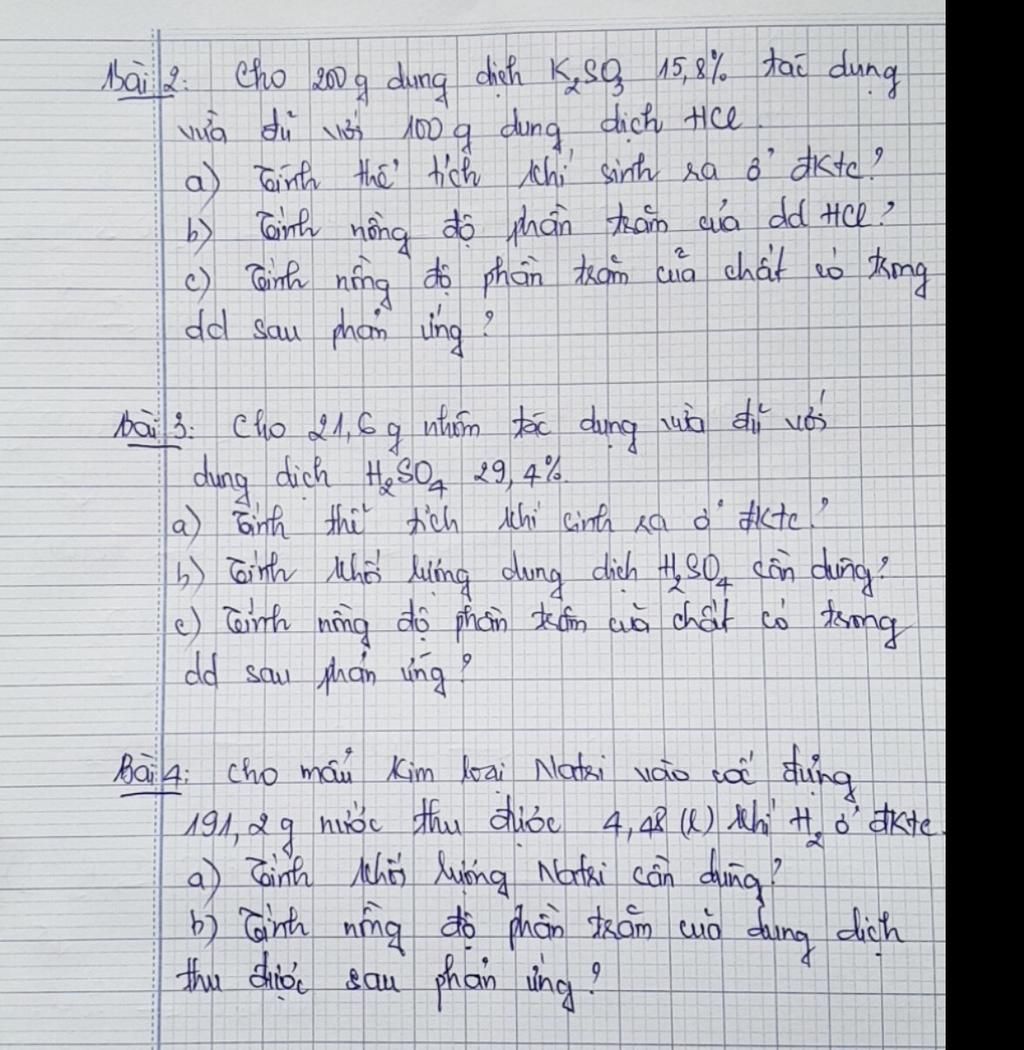 Bài 2: Cho 200 g dung dịch K₂SO₃ 15,8% tác dụng
vừa đủ với 100 g dung dịch HCl.
a) Tính thể tích khí sinh ra ở đktc?
b) Tính nồng độ phần trăm của dd HCl?
c) Tính nồng độ phần trăm của chất có trong
dd sau phản ứng?
Bài 3: Cho 21,6 g nhôm tác dụng vừa đủ với
dung dịch H₂SO₄ 29,4%.
a) Tính thể tích khí sinh ra ở đktc?
b) Tính khối lượng dung dịch H₂SO₄ cần dùng?
c) Tính nồng độ phần trăm của chất có trong
dd sau phản ứng?
Bài 4: Cho mẩu kim loại Natri vào cốc đựng
191,2 g nước thu được 4,48 (l) khí H₂ ở đktc
a) Tính khối lượng Natri cần dùng?
b) Tính nồng độ phần trăm của dung dịch
thu được sau phản ứng?